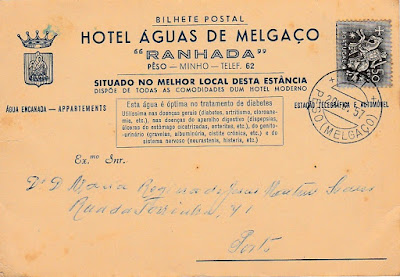 BILHETE POSTAL
HOTEL ÁGUAS DE MELGAÇO
"RANHADA"
PÊSO — MINHO — TELEF. 62
SITUADO NO MELHOR LOCAL DESTA ESTÂNCIA
DISPÕE DE TODAS AS COMODIDADES DUM HOTEL MODERNO
ÁGUA ENCANADA — APPARTEMENTS
ESTAÇÃO TELEGRÁFICA E AUTOMÓVEL
Esta água é óptima no tratamento de diabetes
Utilíssima nas doenças gerais (diabetes, artritismo, cloroanemia, etc.), nas doenças do aparelho digestivo (dispepsias, úlceras do estômago cicatrizadas, enterites, etc.), do genito-urinário (graveias, albuminúria, cistite crónica, etc.) e do sistema nervoso (neurastenia, histeria, etc.)
PESO (MELGAÇO)
57
Ex.mo Snr.
Dr D Maria
Rua da 41
Porto